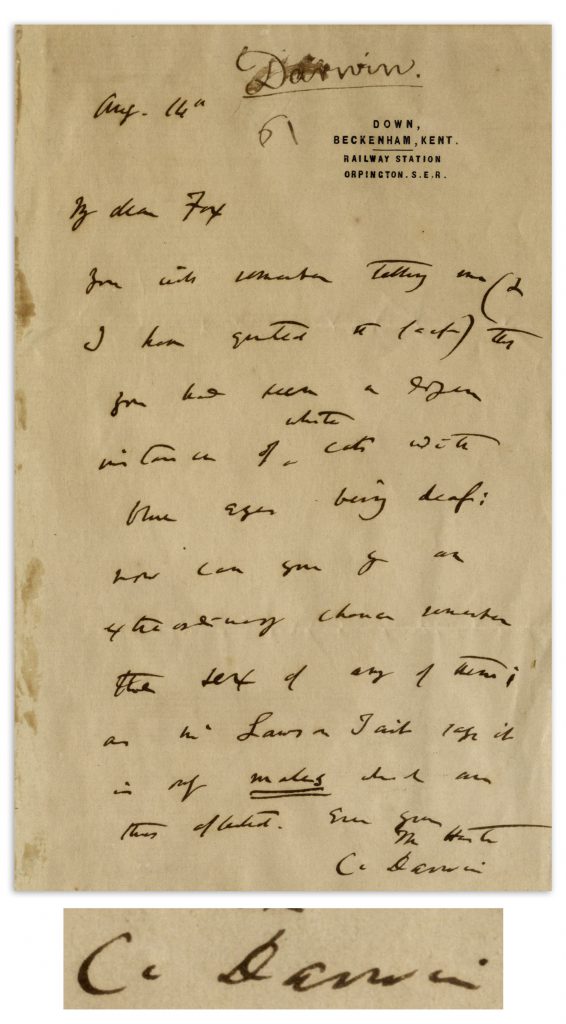 Darwin.
Aug. 14th
61
DOWN,
BECKENHAM, KENT.
RAILWAY STATION
ORPINGTON. S.E.R.
My dear Fox
You will remember telling me (&
I have quoted the fact) that
you had seen a dozen
white
instances of cats with
blue eyes being deaf;
now can you by an
extraordinary chance remember
the sex of any of them;
as Mr Lawson Tait says it
is only males which are
thus affected. Ever yours
In Haste
C. Darwin
C. Darwin